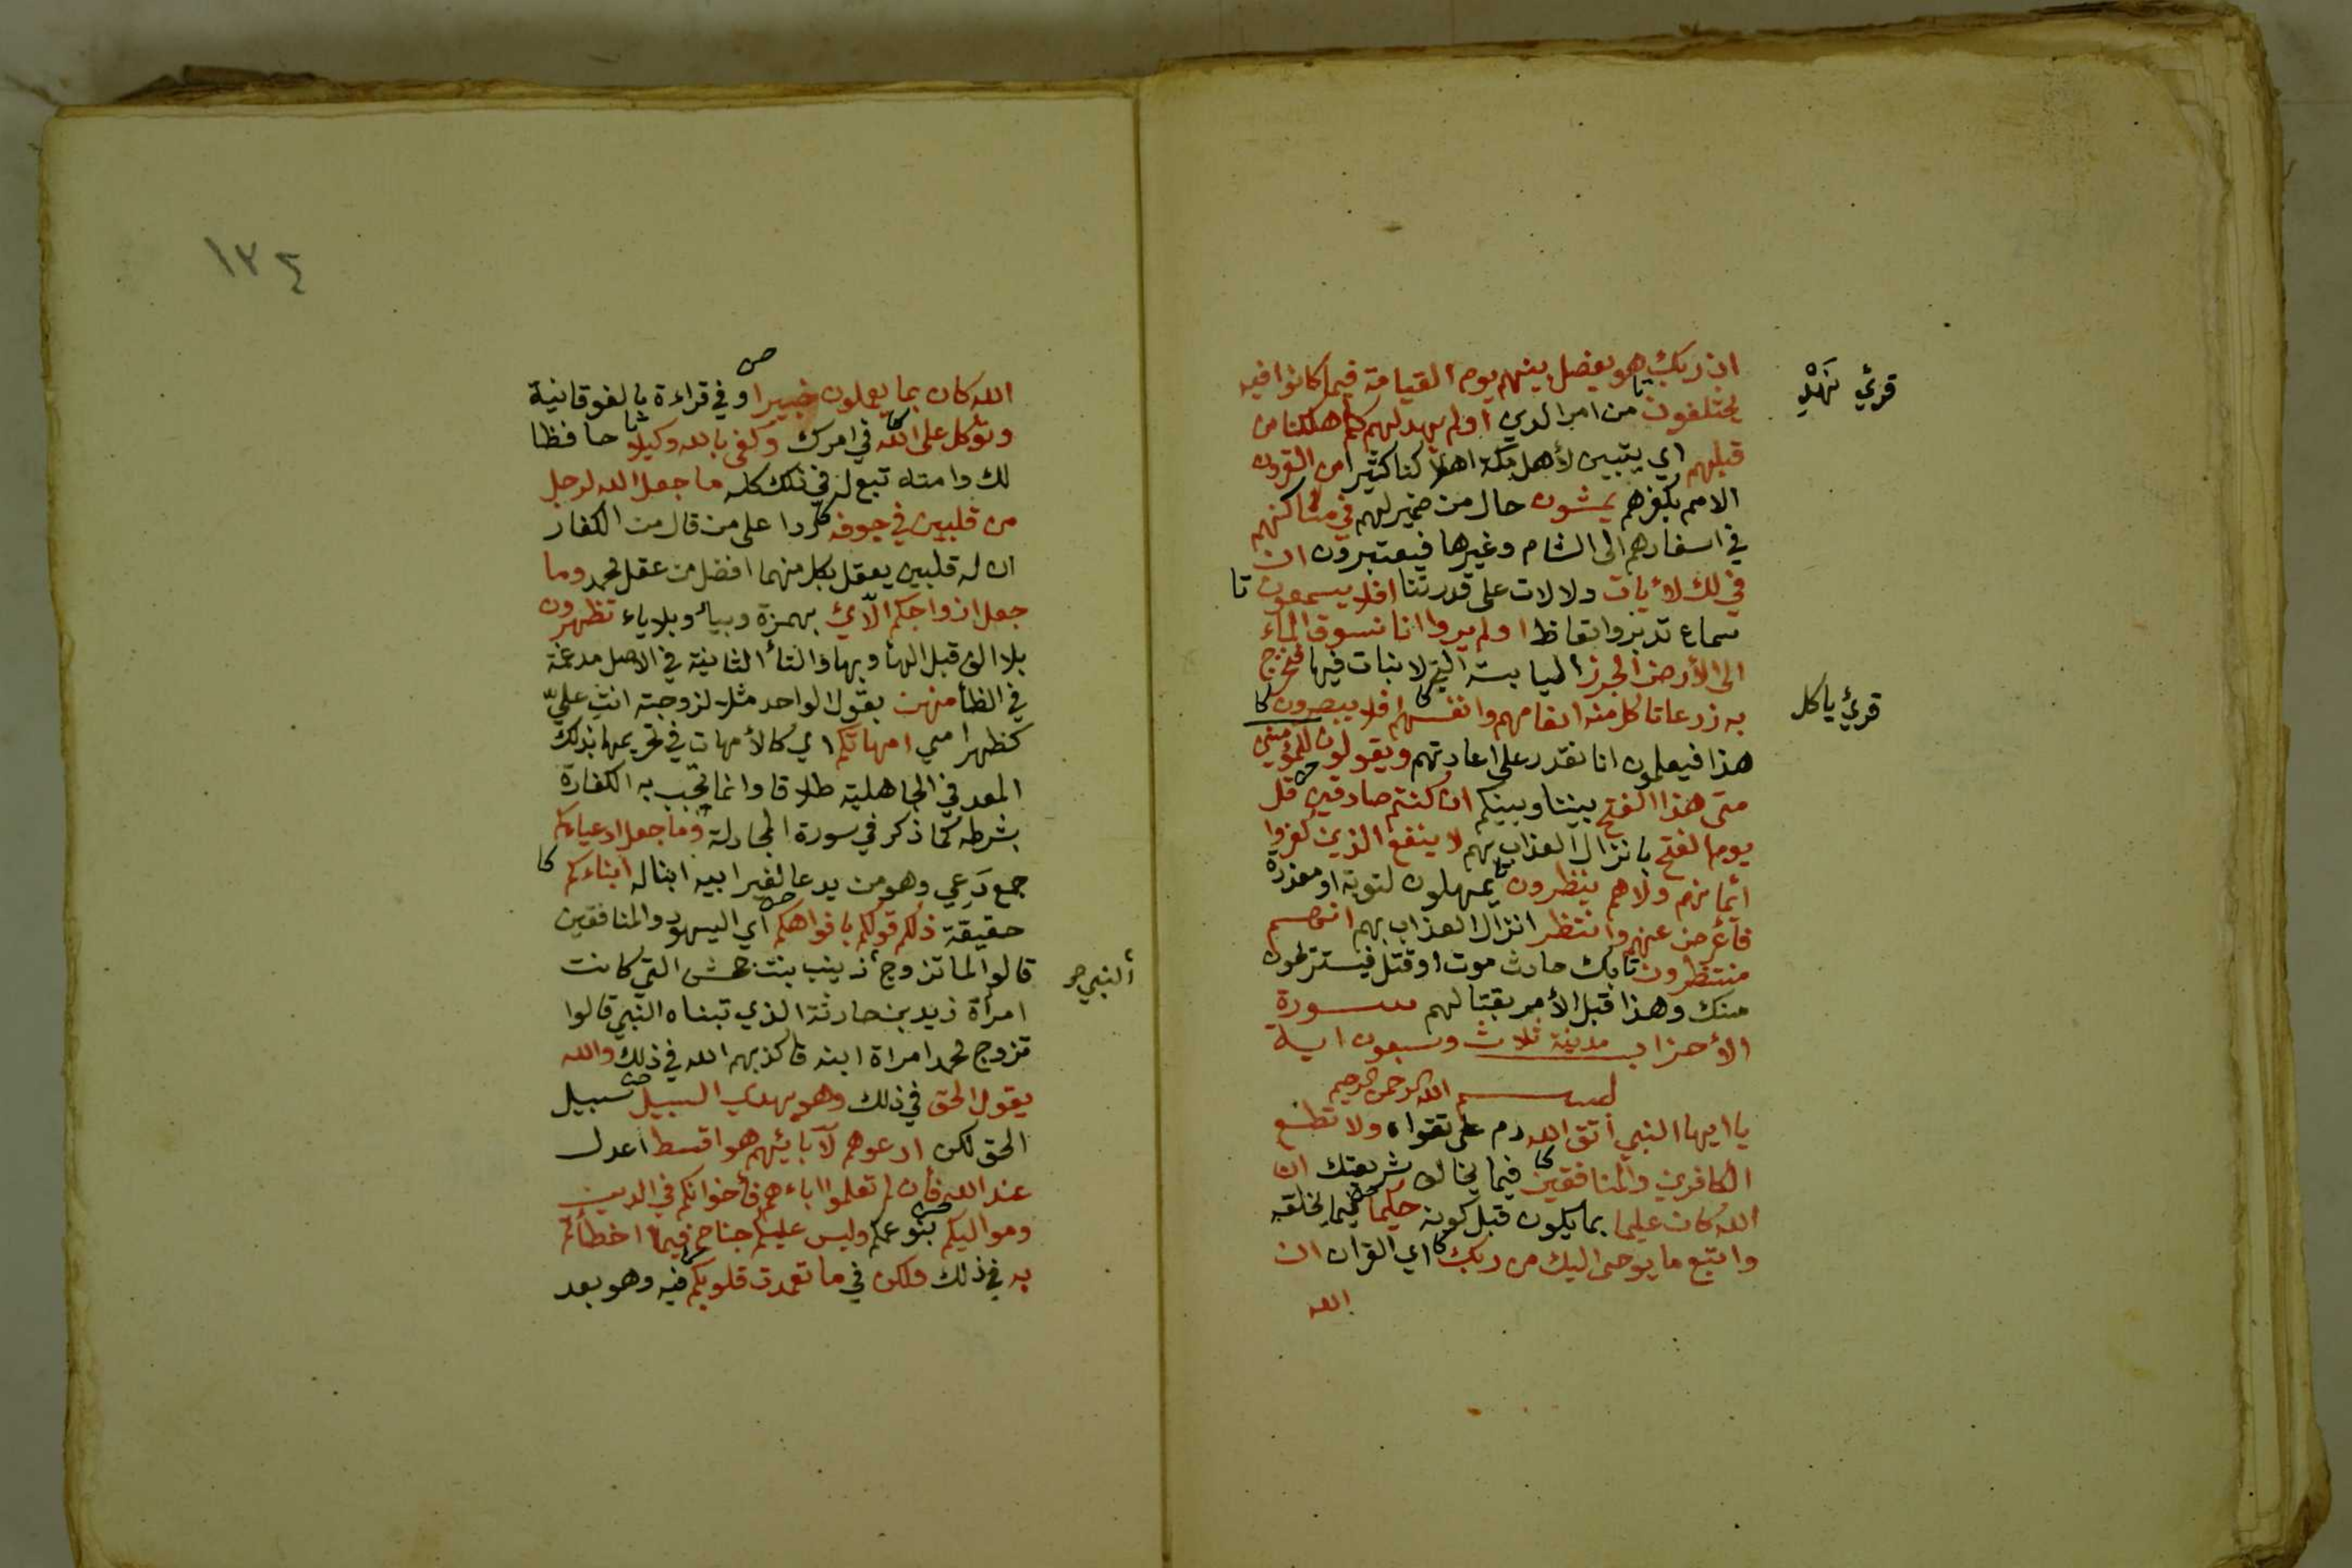 ان ربك هو يفصل بينهم يوم القيامة فيما كانوا فيه
يختلفون من امر الدين اولم يهد لهم كم اهلكنا من
قبلهم اي يتبين لأهل مكة اهلاكنا كثيرا من القرون
الامم بكفرهم يمشون حال من ضمير لهم في مساكنهم
في اسفارهم الى الشام وغيرها فيعتبرون ان
في ذلك لأيات دلالات على قدرتنا افلا يسمعون
سماع تدبر واتعاظ اولم يروا انا نسوق الماء
الى الأرض الجرز اليابسة التي لا نبات فيها فنخرج
به زرعا تاكل منه انعامهم وانفسهم افلا يبصرون
هذا فيعلمون انا نقدر على اعادتهم ويقولون للمؤمنين
متى هذا الفتح بيننا وبينكم ان كنتم صادقين قل
يوم الفتح بانزال العذاب بهم لا ينفع الذين كفروا
ايمانهم ولاهم ينظرون يمهلون لتوبة او معذرة
فأعرض عنهم وانتظر انزال العذاب بهم انهم
منتظرون بك حادث موت اوقتل فيستريحون
منك وهذا قبل الأمر بقتالهم سورة
الأحزاب مدنية ثلاث وسبعون اية
بسم الله الرحمن الرحيم
يا ايها النبي اتق الله دم على تقواه ولا تطع
الكافرين والمنافقين فيما يخالف شريعتك ان
الله كان عليما بما يكون قبل كونه حكيما فيما يخلقه
واتبع ما يوحى اليك من ربك اي القران ان
الله
قرئ نَهْدِ
قرئ ياكل
١٣٤
الله كان بما يعملون خبيرا وفي قراءة بالفوقانية
وتوكل على الله في امرك وكفى بالله وكيلا حافظا
لك وامته تبع له في ذلك كله ما جعل الله لرجل
من قلبين في جوفه ردا على من قال من الكفار
ان له قلبين يعقل بكل منهما افضل من عقل محمد وما
جعل ازواجكم الآئ بهمزة وبياء وبلا ياء تظهرون
بلا الف قبل الهأ وبها والتأ الثانية في الاصل مدغمة
في الظأ منهن بقول الواحد مثلا لزوجته انت عليّ
كظهر امي امهاتكم اي كالأمهات في تحريمها بذلك
المعد في الجاهلية طلاقا وانما تجب به الكفارة
بشرطه كما ذكر في سورة المجادلة وما جعل ادعياءكم
جمع دَعي وهو من يدعا لغير ابيه ابنا له ابناءكم
حقيقة ذلكم قولكم بافواهكم اي اليهود والمنافقين
قالوا لما تزوج زينب بنت جحش التي كانت
امرأة زيد بن حارثة الذي تبناه النبي قالوا
تزوج محمد امراة ابنه فاكذبهم الله في ذلك والله
يقول الحق في ذلك وهو يهدي السبيل سبيل
الحق لكن ادعوهم لآبائهم هو اقسط اعدل
عند الله فأن لم تعلموا اباءهم فأخوانكم في الدين
ومواليكم بنو عمكم وليس عليكم جناح فيما اخطأتم
به في ذلك ولكن في ما تعمدت قلوبكم فيه وهو بعد
النبي